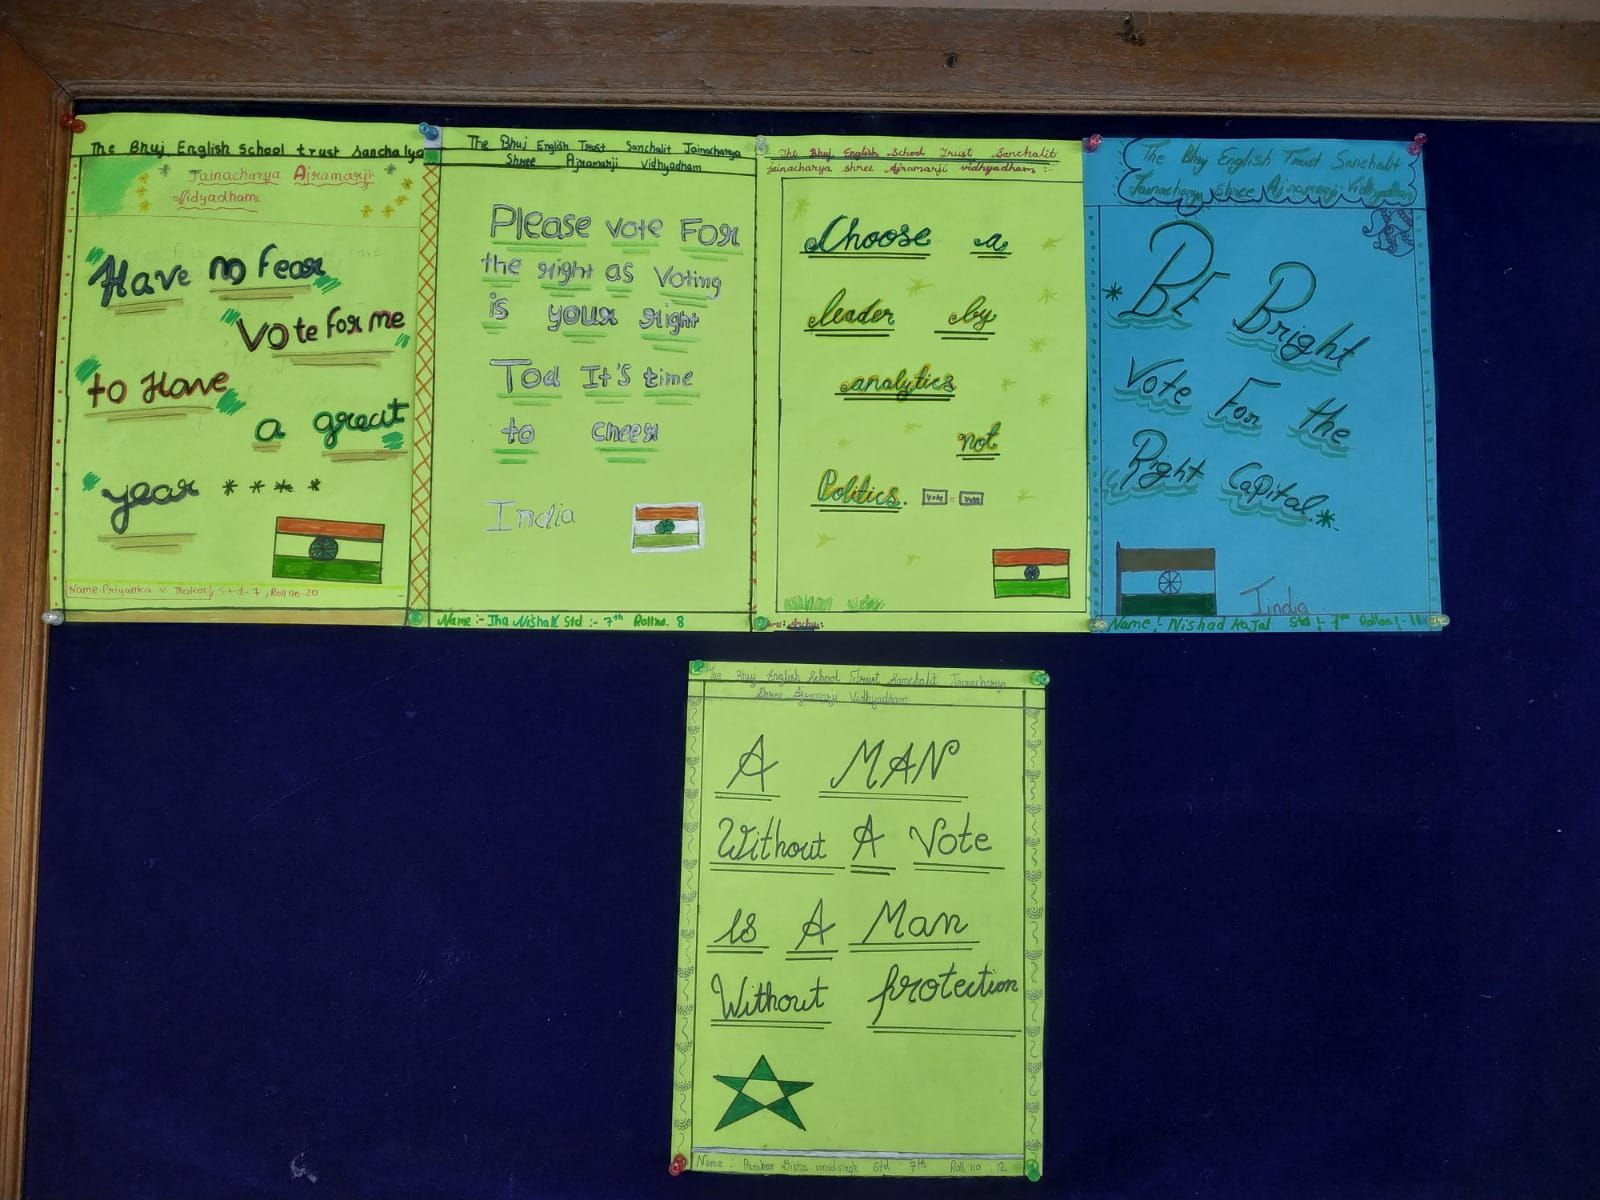 The Bhuj English School trust Sanchalya
Jainacharya Ajramarji
Vidyadham
Have no fear
Vote for me
to Have
a great
year ****
Name:Priyanka V. Thaker, Std-7, Roll no-20
The Bhuj English Trust Sanchalit Jainacharya
Shree Ajramarji Vidhyadham
Please vote For
the right as Voting
is your right
Tod It's time
to cheer
India
Name :- Jha Nisha K Std :- 7th Roll no. 8
The Bhuj English School Trust Sanchalit
jainacharya shree Ajramarji vidhyadham :-
Choose a
leader by
analytics
not
Politics. Vote - Vote
The Bhuj English Trust Sanchalit
Jainacharya Shree Ajramarji Vidhyadham
BE Bright
Vote For the
Right Capital.
India
Name :- Nishad Kajal Std :- 7th
The Bhuj English School Trust Sanchalit Jainacharya
Shree Vidhyadham
A MAN
Without A Vote
is A Man
Without protection
Name : Disha Std - 7th Roll no 12